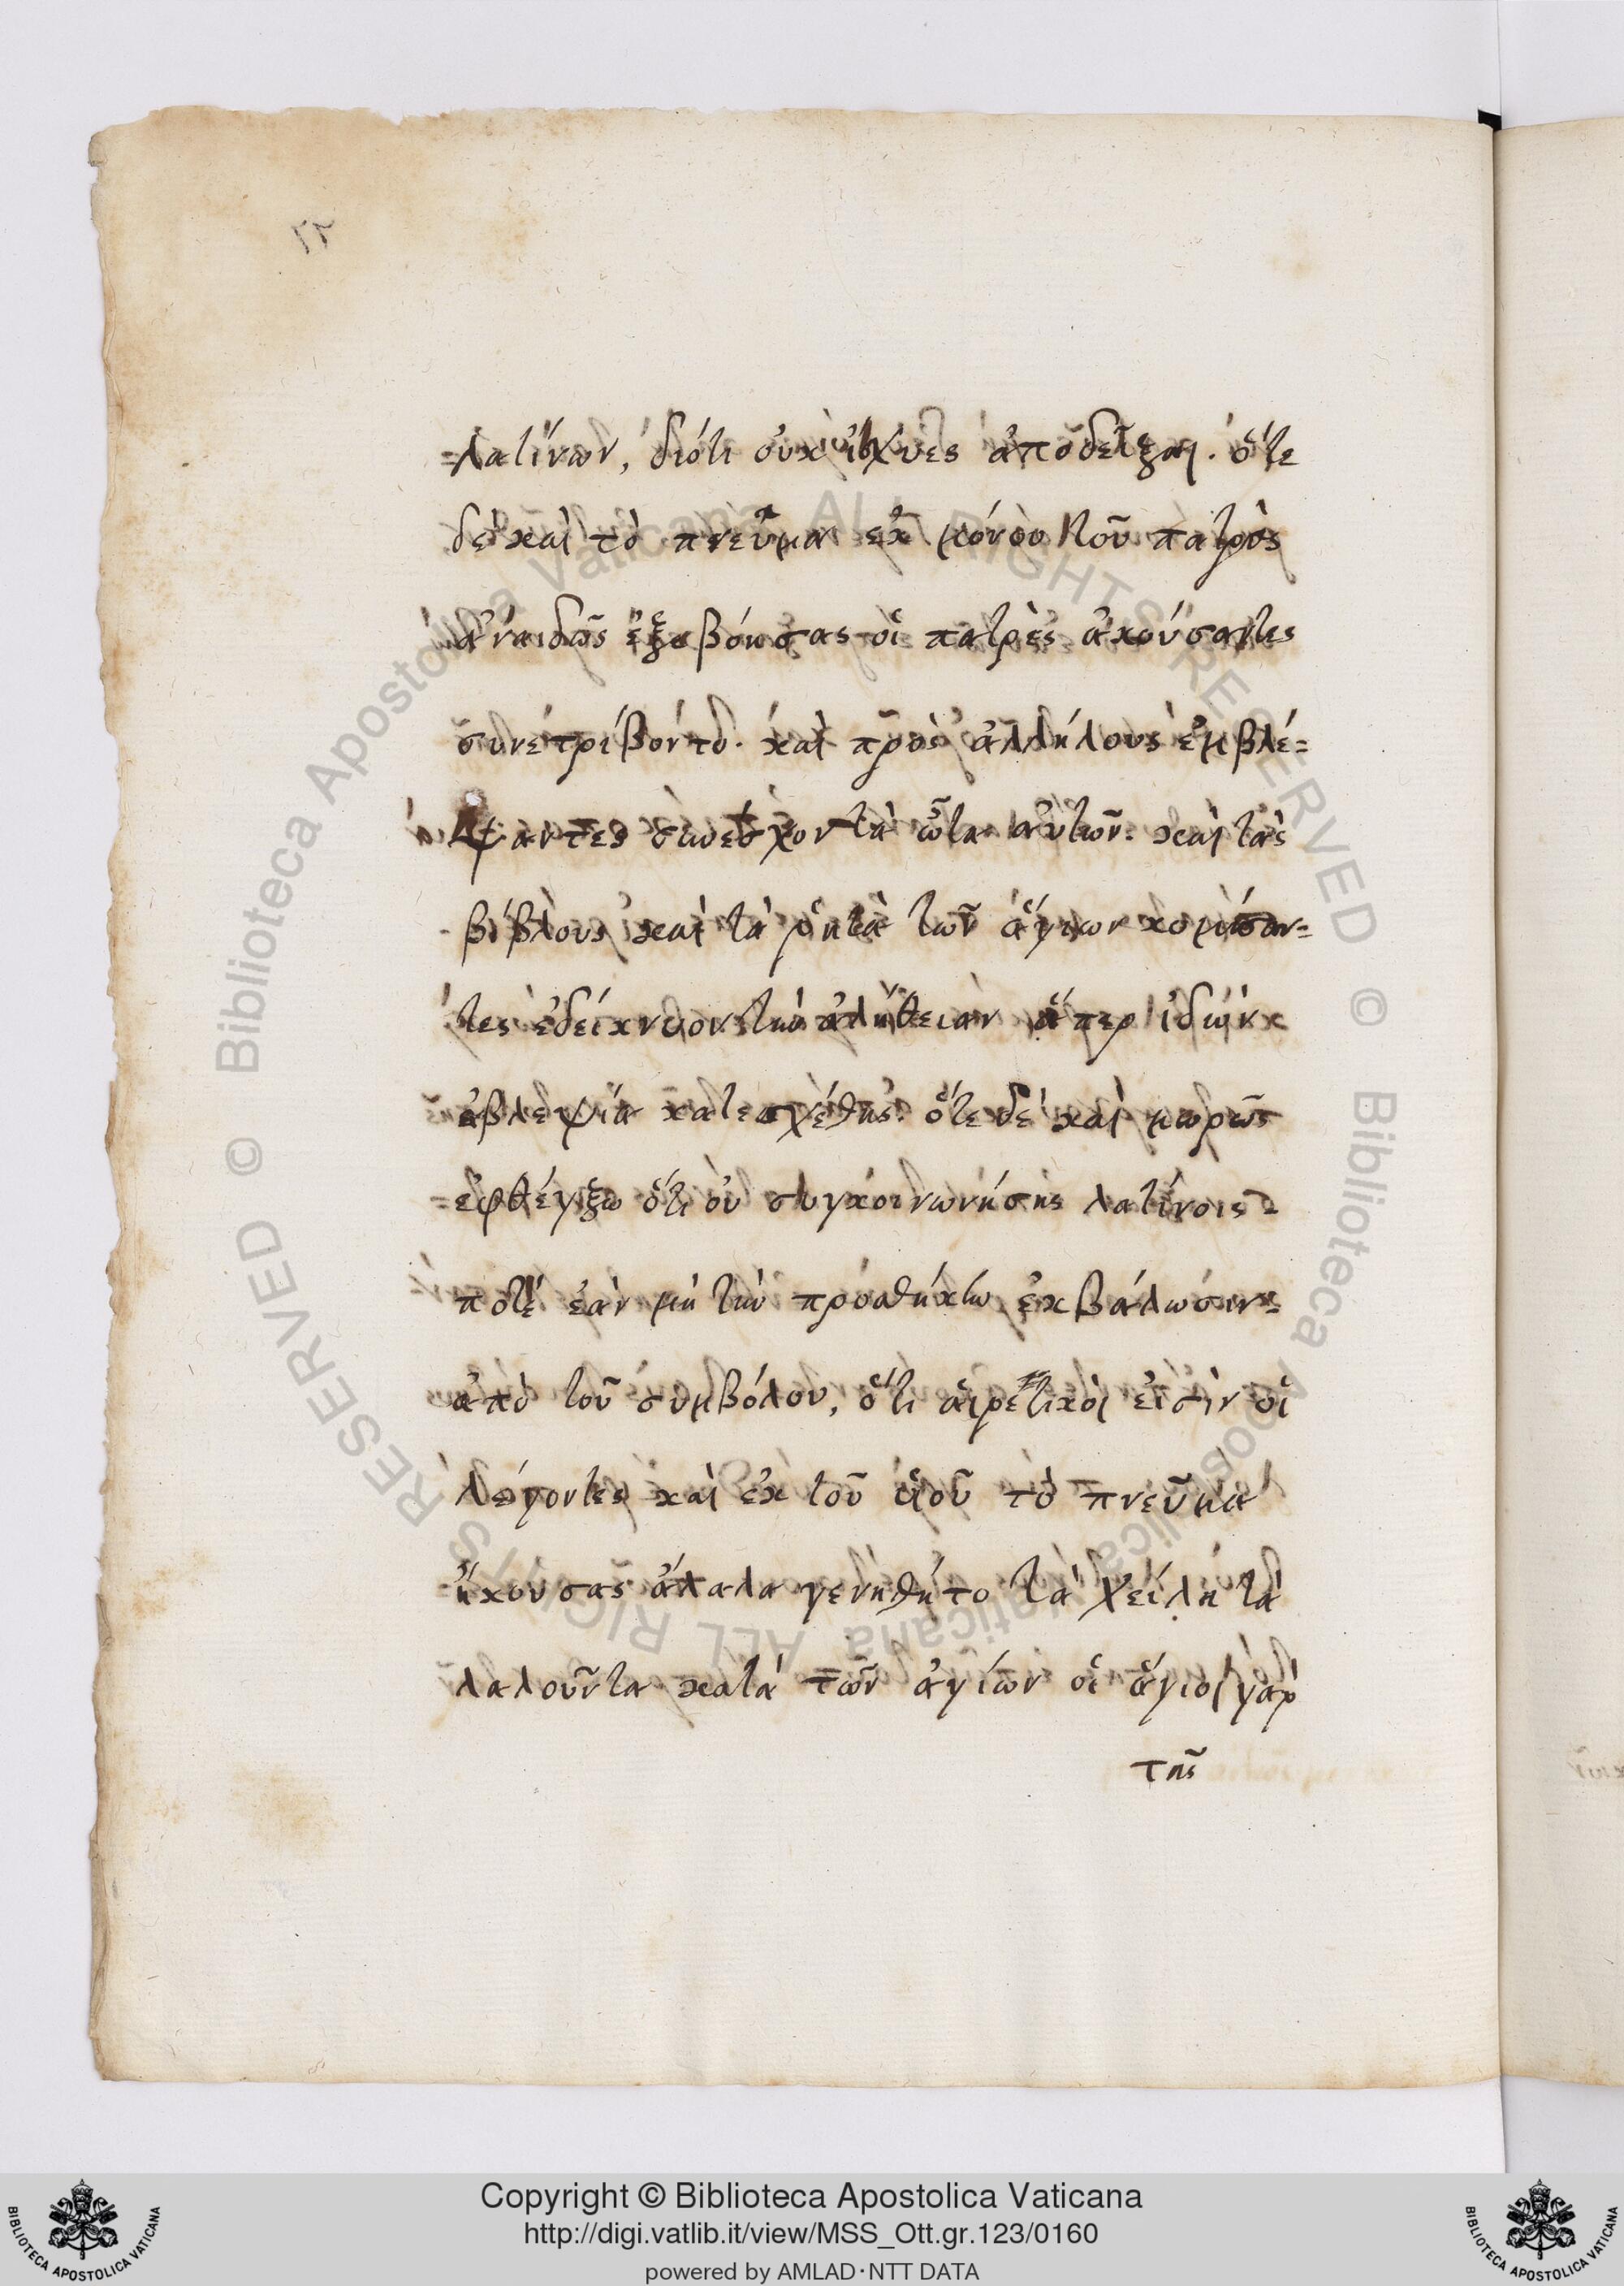 λατίνων, διότι οὐκ ἴσχυες ἀποδεῖξαι. ὅτε
δὲ καὶ τὸ πνεῦμα ἐκ μόνου τοῦ πατρὸς
ἀναιδῶς ἐξεβόησας οἱ πατρὲς ἀκούσαντες
συνετρίβοντο. καὶ πρὸς ἀλλήλους ἐμβλέ=
ψαντες συνεῖχον τὰ ὦτα αὐτῶν. καὶ τὰς
βίβλους καὶ τὰ ῥητὰ τῶν ἁγίων κομίσαν=
τες ἐδείκνυον τὴν ἀλήθειαν ἅπερ ἰδὼν
ἀβλεψία κατεσχέθης. ὅτε δὲ καὶ μωρῶς
ἐφθέγξω ὅτι οὐ συγκοινωνήσης λατίνοις
ποτέ ἐὰν μὴ τὴν προσθήκην ἐκβάλωσιν
ἀπὸ τοῦ συμβόλου, ὅτι αἱρετικοὶ εἰσὶν οἱ
λέγοντες καὶ ἐκ τοῦ υἱοῦ τὸ πνεῦμα
ἤκουσας ἄλαλα γενηθήτο τὰ χείλη τὰ
λαλοῦντα κατὰ τῶν ἁγίων οἱ ἅγιοι γὰρ
τῆς
Copyright © Biblioteca Apostolica Vaticana
http://digi.vatlib.it/view/MSS_Ott.gr.123/0160
powered by AMLAD·NTT DATA
BIBLIOTECA APOSTOLICA VATICANA
BIBLIOTECA APOSTOLICA VATICANA
© Biblioteca Apostolica Vaticana ALL RIGHTS RESERVED © Biblioteca Apostolica Vaticana ALL RIGHTS RESERVED